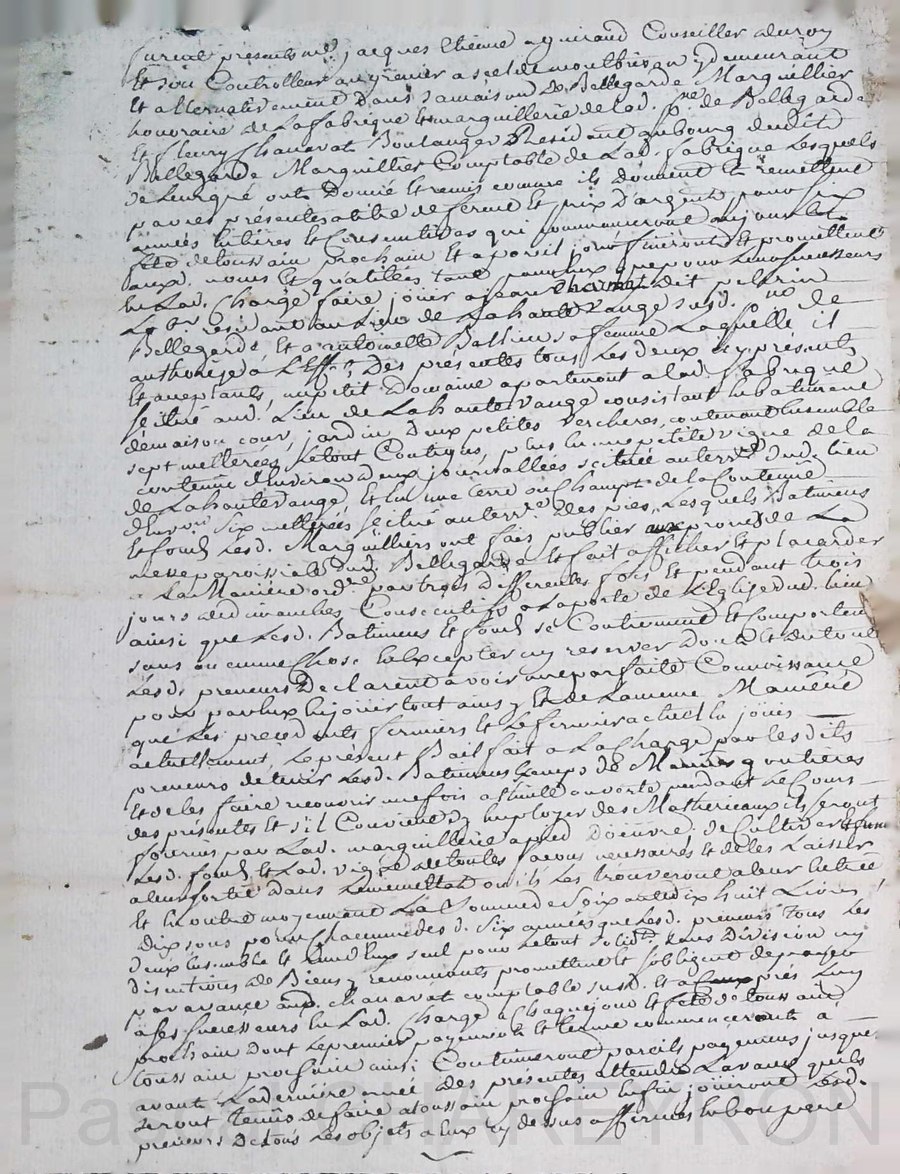 furent presents me. jacques Etienne aguiraud Conseiller du roy
Et son Controlleur au grenier a sel de montbrison y demeurant
Et alternativement Dans sa maison De Bellegarde Marguillier
honoraire de La fabrique Et marguillerie de lad. psse. de Bellegarde
Et fleury Chanavat Boulanger Residant au bourg dudit
Bellegarde Marguillier Comptable de Lad. fabrique Lesquels
de Leur gré ont Donné Et remis comme ils Donnent Et remettent
par ces présentes a titre de ferme Et prix d'argent pour six
années Entières Et Consecutives qui Commenceront au jour Et
fete de toussain prochain Et a pareil jour finiront Et promettent
auxd. noms Et qualittés tant pour Eux que pour Leurs successeurs
En Lad. Charge faire joüir a jean Dit pelerin
La resident au Lieu de La haute Vange susd. psse de
Bellegarde Et a antoinette sa femme Laquelle il
authorise a L'Efft. Des présentes tous Les deux icy presents
Et acceptants, un petit Domaine apartenant a lad. fabrique
scitué aud. Lieu de La haute Vange consistant En batiment
de maison, cour, jardin Deux petites Vercheres, contenant Ensemble
sept metterées, Le tout Contigus, plus En une petite vigne de la
contenue d'Environ Deux journallées scituée au terre. dud. Lieu
de La haute Vange Et En une terre ou Champt de La Contenue
d'Environ Six metterées scitué au terre. Des pies, Lesquels Batimens
Et fonds Lesd. Marguilliers ont fais publier aux prones de La
messe paroissialle dud. Bellegarde Et fait afficher Et placarder
La Manière ordre. par trois differentes fois Et pendant trois
jours de dimanches Consecutifs a La porte de L'Eglise dud. Lieu
ainsi que Lesd. Batimens Et fonds se Contiennent Et Comportent
sans aucune Chose En Excepter ny reserver Dont Et du tout
Lesds. preneurs Declarent avoir une parfaite Connoissance
pour par Eux En joüir tout ainsy Et de La meme Maniere
que Les precedents fermiers Et Le fermier actuel En joüis
actuellement, Le présent Bail fait a La Charge par Lesdits
preneurs de tenir Lesd. Batimens Exemps de Menües goutieres
Et de les faire recouvrir une fois a thuile ouverte pendant Le Cours
des présentes Et s'il Convient d'y Employer des Matheriaux ils seront
fournis par Lad. marguillerie a pied D'oeuvre, de Cultiver Et fumer
Lesd. fonds Et Lad. vigne de toutes façons necessaires Et de les Laisser
a leur sortie dans Le meme Etat ou ils Les trouveront a leur Entrée
Et En outre moyennant La Somme de Soixante dix huit Livres
dix sous pour Chacune desd. Six années que Lesd. preneurs tous Les
deux Ensemble Et L'un d'Eux seul pour Le tout solidt. sans Division ny
discutions de Biens y renoncants promettent Et s'obligent de payer
par avance aud. Chanavat comptable susd. Et a après Luy
a ses successeurs En Lad. Charge a Chaque jour Et fete de toussaint
prochain dont Le premier payement Et terme commencera a
toussain prochain ainsi Continueront pareils payemens jusques
avant La derniere année des présentes attendu L'avance qu'ils
seront tenus de faire a toussain prochain Enfin joüiront Lesd.
preneurs De tous Les objets a Eux cy dessus affermés En bon pere
Pascal CHAREYRON